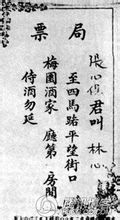 局票
張心君叫 林心
至四馬路平望街口
梅園酒家 廳第 房間
侍酒勿延